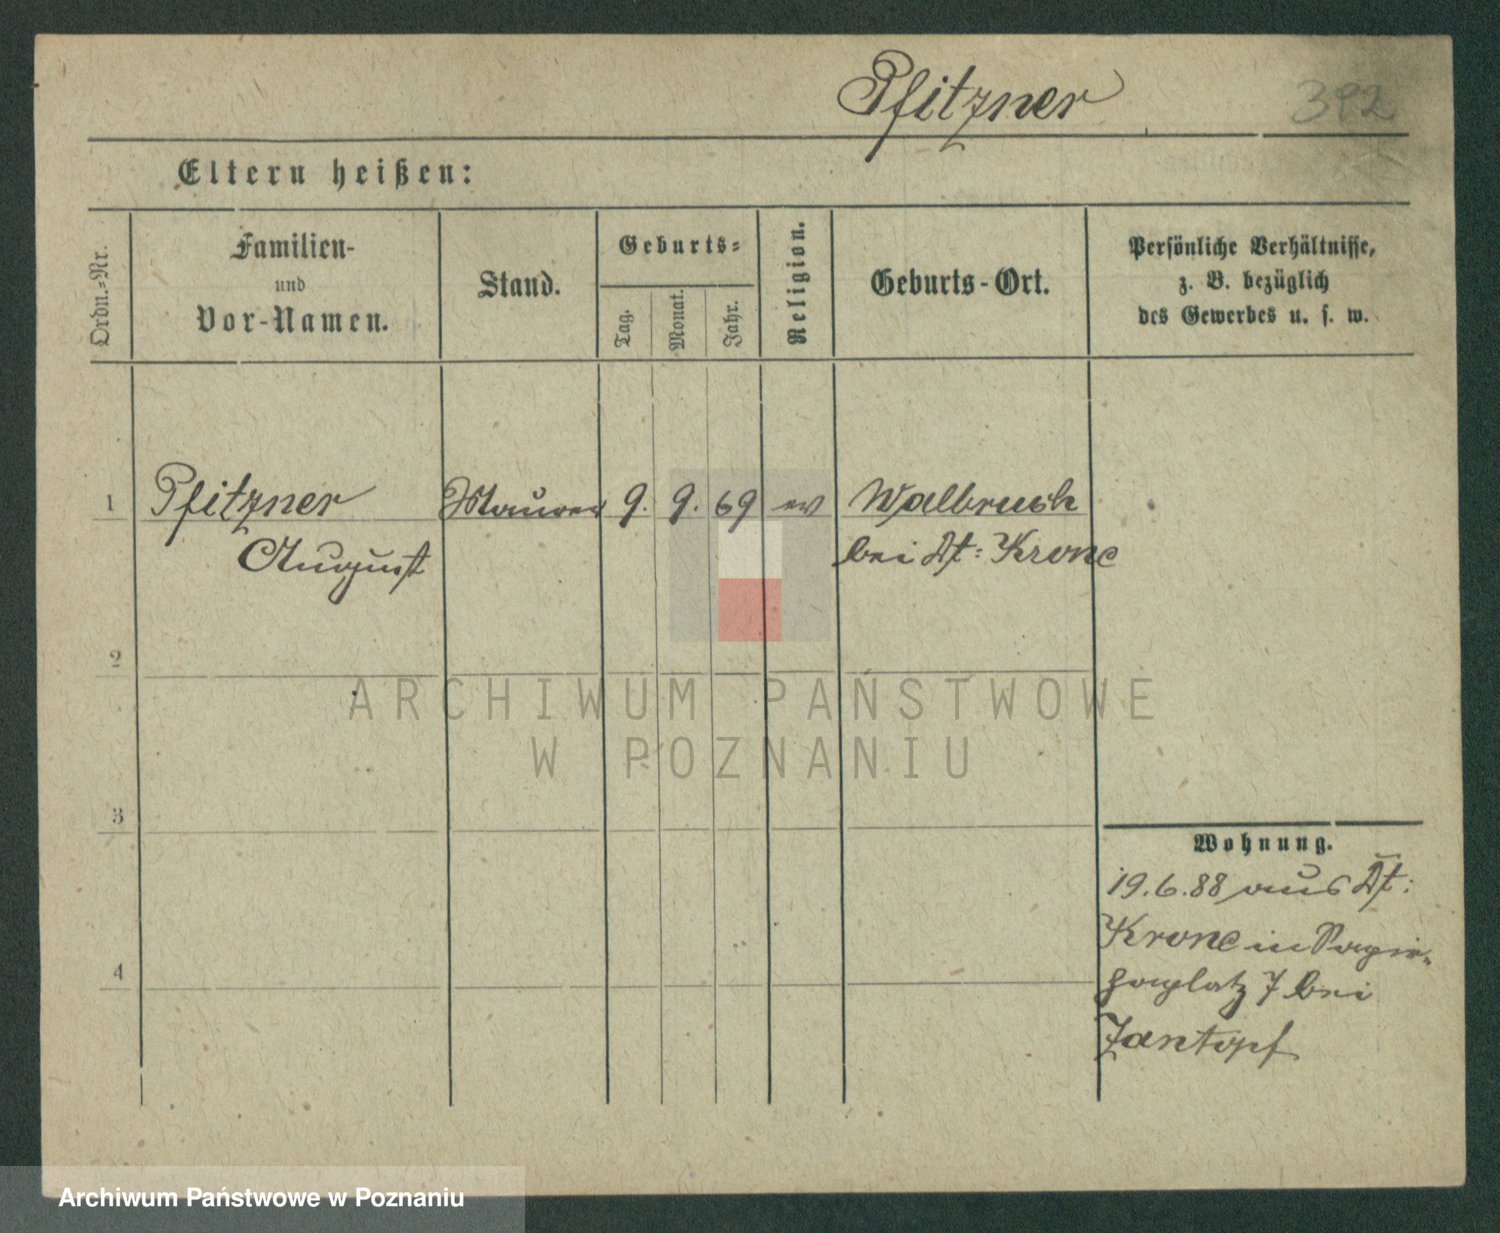 Pfitzner
392
Eltern heißen:
Ordn.-Nr.
Familien-
und
Vor-Namen.
Stand.
Geburts-
Tag.
Monat.
Jahr.
Religion.
Geburts-Ort.
Persönliche Verhältnisse,
z. B. bezüglich
des Gewerbes u. s. w.
1 Pfitzner Maurer 9. 9. 69 ev Walbrush
August bei Dt: Krone
2
3
4
Wohnung.
19.6.88 aus Dt:
Krone in
platz 7 bei
Zantopf
ARCHIWUM PAŃSTWOWE
W POZNANIU
Archiwum Państwowe w Poznaniu